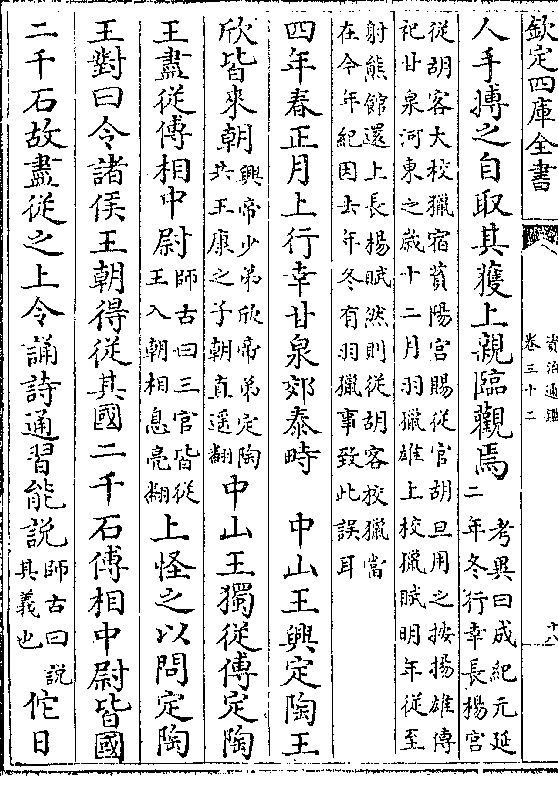 欽定四庫全書
資治通鑑
卷三十二
十八
人手搏之自取其獲上親臨觀焉
考異曰成紀元延
二年冬行幸長楊宮
從胡客大校獵宿萯陽宮賜從官胡旦用之按揚雄傳
祀甘泉河東之歲十二月羽獵雄上校獵賦明年從至
射熊館還上長楊賦然則從胡客校獵當
在今年紀因去年冬有羽獵事致此誤耳
四年春正月上行幸甘泉郊泰時　中山王興定陶王
欣皆來朝
興帝少弟欣帝弟定陶
共王康之子朝直遥翻
中山王獨從傅定陶
王盡從傅相中尉
師古曰三官皆從
王入朝相息亮翻
上怪之以問定陶
王對曰令諸侯王朝得從其國二千石傅相中尉皆國
二千石故盡從之上令誦詩通習能說
師古曰說
其義也
佗日